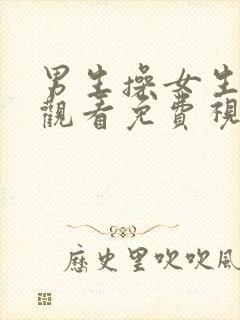 男生操女生
觀看免費視
歷史里吹吹風